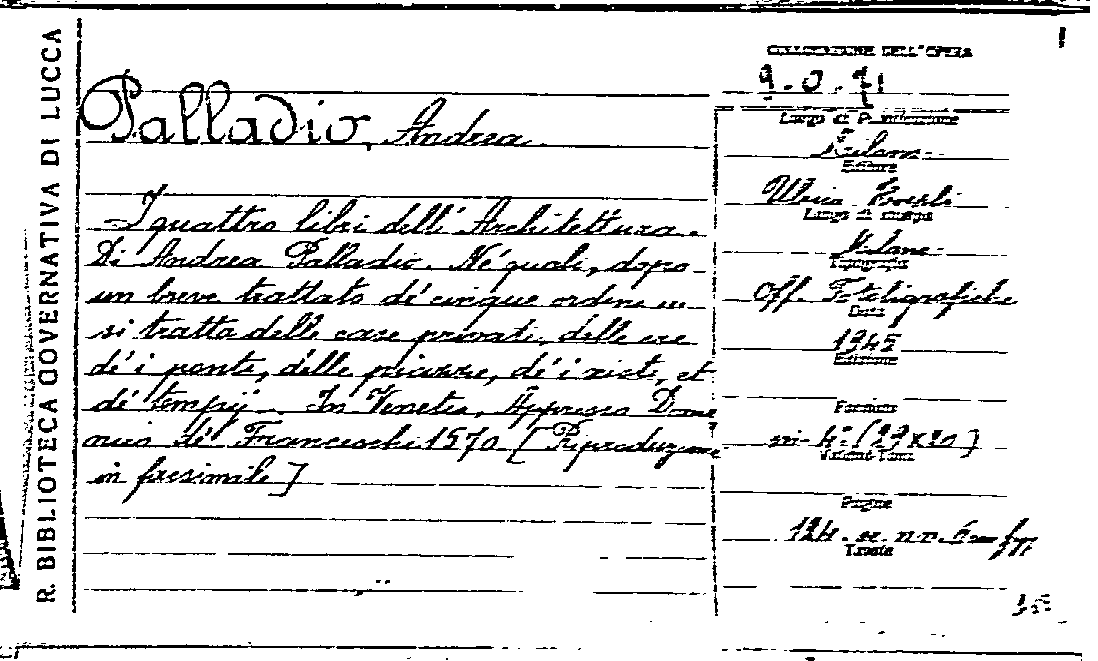 R. BIBLIOTECA GOVERNATIVA DI LUCCA
Palladio, Andrea
I quattro libri dell' Architettura.
Di Andrea Palladio. Ne' quali, dopo
un breve trattato de' cinque ordini
si tratta delle case private, delle vie
de' i ponti, delle piazze, de' i xisti, et
de' tempij. In Venetia, Appresso Dome
nico de' Franceschi 1570 [Riproduzione
in facsimile]
COLLOCAZIONE DELL'OPERA
9.0.71
Luogo di Pubblicazione
Milano
Editore
Ulrico Hoepli
Luogo di stampa
Milano
Tipografia
Off. Fotolitografiche
Data
1945
Edizione
Formato
in-4° (29x20)
Volumi-Tomi
Pagine
Tavole